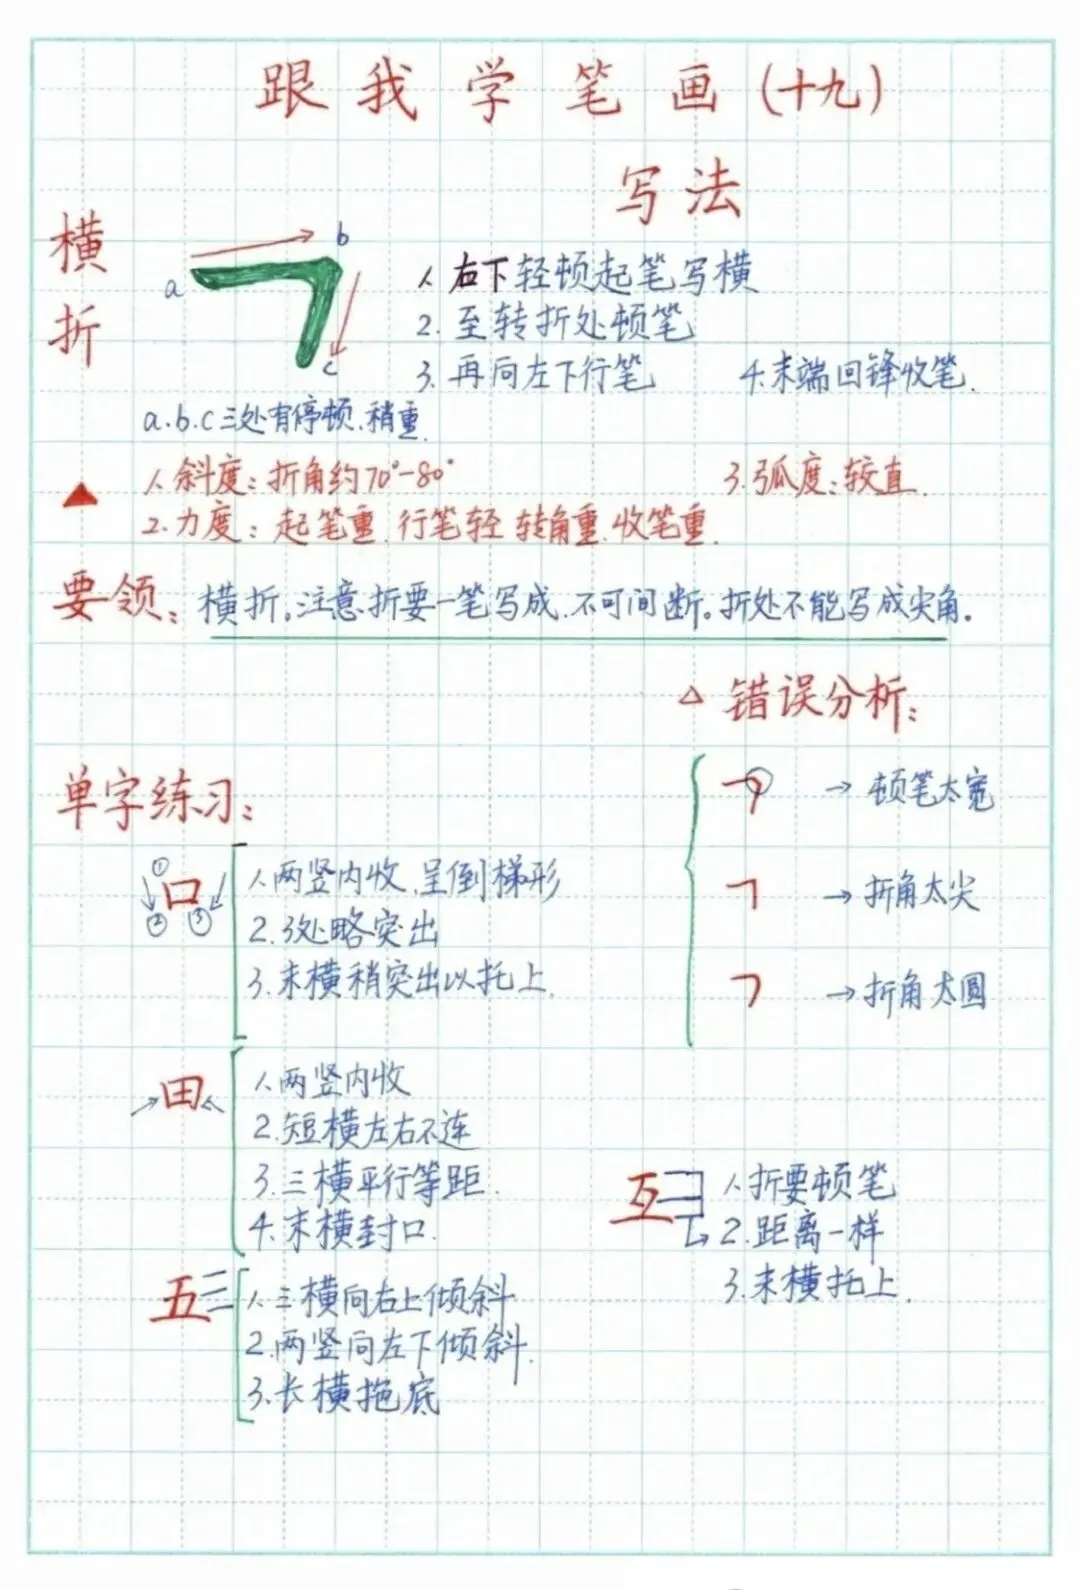 跟我学笔画(十九)
写法
横折
a
b
c
1.右下轻顿起笔写横
2.至转折处顿笔
3.再向左下行笔 4.末端回锋收笔.
a.b.c三处有停顿、稍重.
1.斜度:折角约70°-80° 3.弧度:较直.
2.力度:起笔重.行笔轻 转角重.收笔重.
要领:横折。注意折要一笔写成.不可间断。折处不能写成尖角.
△错误分析:
→顿笔太宽
→折角太尖
→折角太圆
单字练习:
①
口
② ③
1.两竖内收.呈倒梯形
2.3处略突出
3.末横稍突出以托上.
田
1.两竖内收
2.短横左右不连
3.三横平行等距.
4.末横封口.
互
1.折要顿笔
2.距离一样
3.末横托上.
五
1.三横向右上倾斜.
2.两竖向左下倾斜.
3.长横拖底